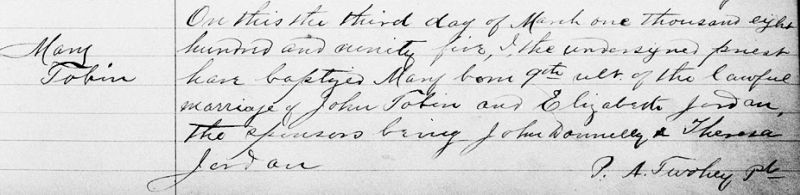 Mary
Tobin
On this the third day of March one thousand eight
hundred and ninity five, I, the undersigned priest
have baptized Mary born 9th ult. of the lawful
marriage of John Tobin and Elizabeth Jordan,
the sponsors being John Donnelly & Theresa
Jordan
P. A. Twohey pt